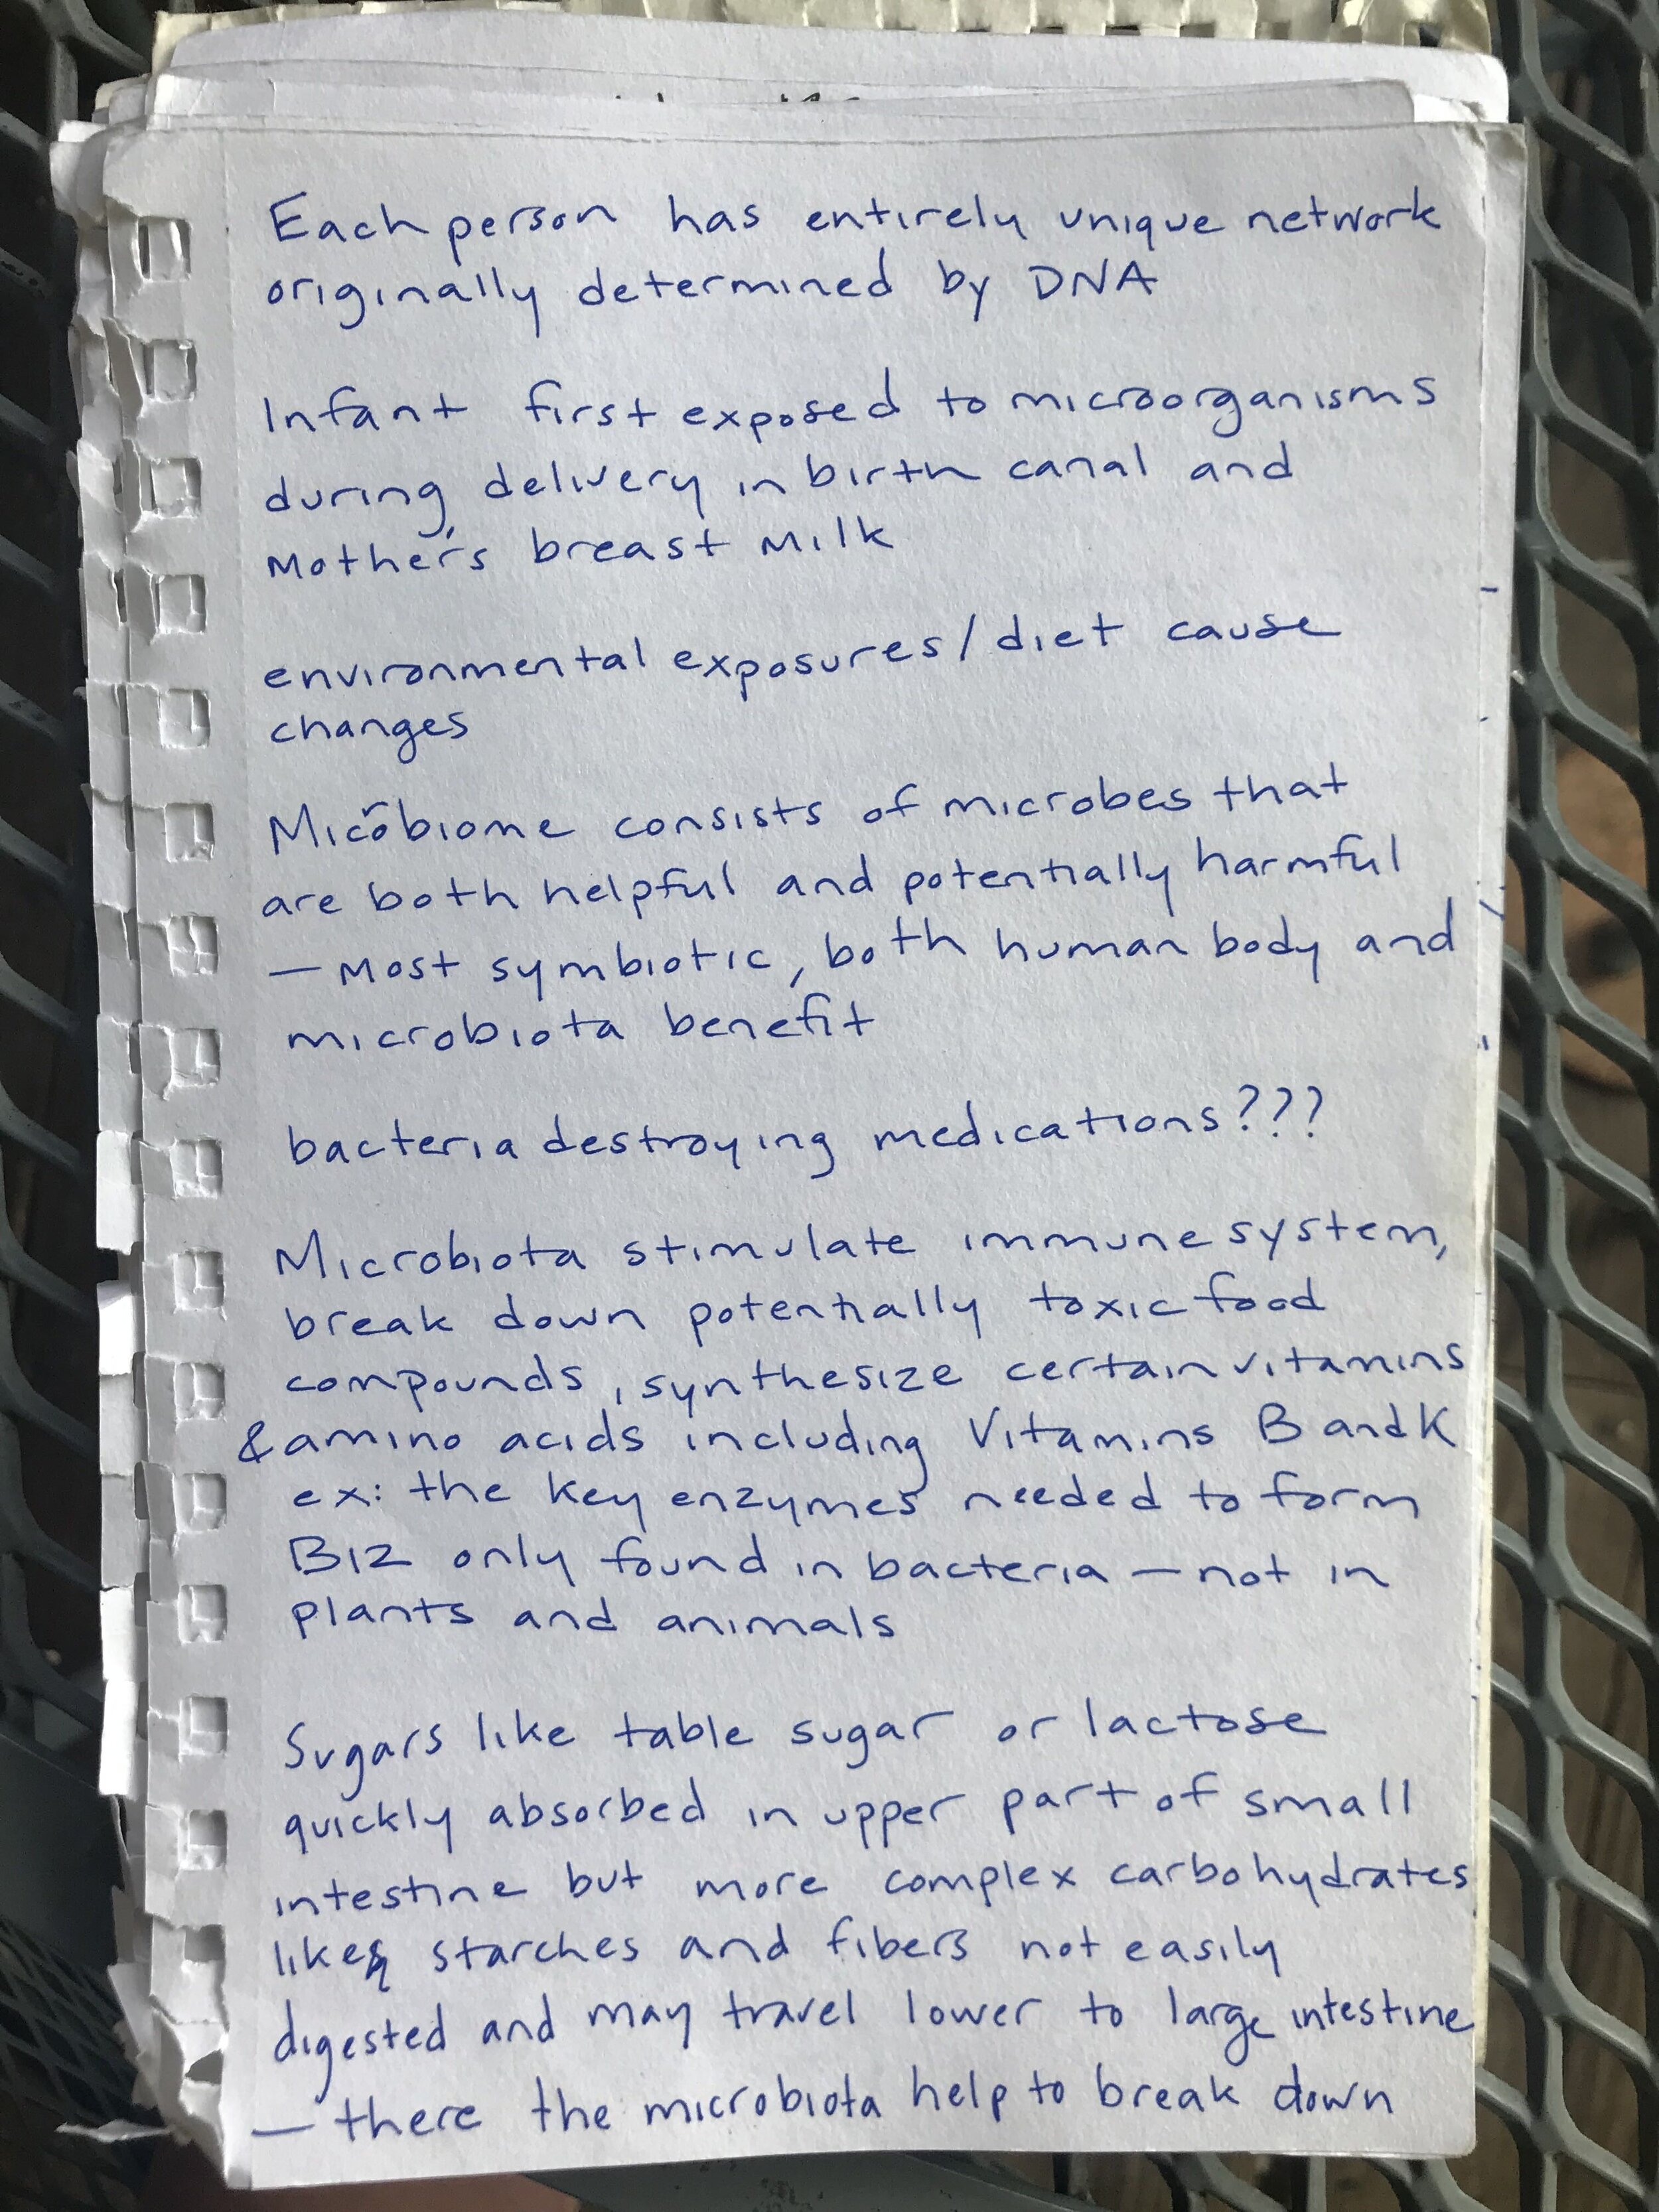 Each person has entirely unique network
originally determined by DNA
Infant first exposed to microorganisms
during delivery in birth canal and
Mother's breast milk
environmental exposures/diet cause
changes
Microbiome consists of microbes that
are both helpful and potentially harmful
— Most symbiotic, both human body and
microbiota benefit
bacteria destroying medications???
Microbiota stimulate immune system,
break down potentially toxic food
compounds, synthesize certain vitamins
& amino acids including Vitamins B and K
ex: the key enzymes needed to form
B12 only found in bacteria — not in
plants and animals
Sugars like table sugar or lactose
quickly absorbed in upper part of small
intestine but more complex carbohydrates
like starches and fibers not easily
digested and may travel lower to large intestine
— there the microbiota help to break down